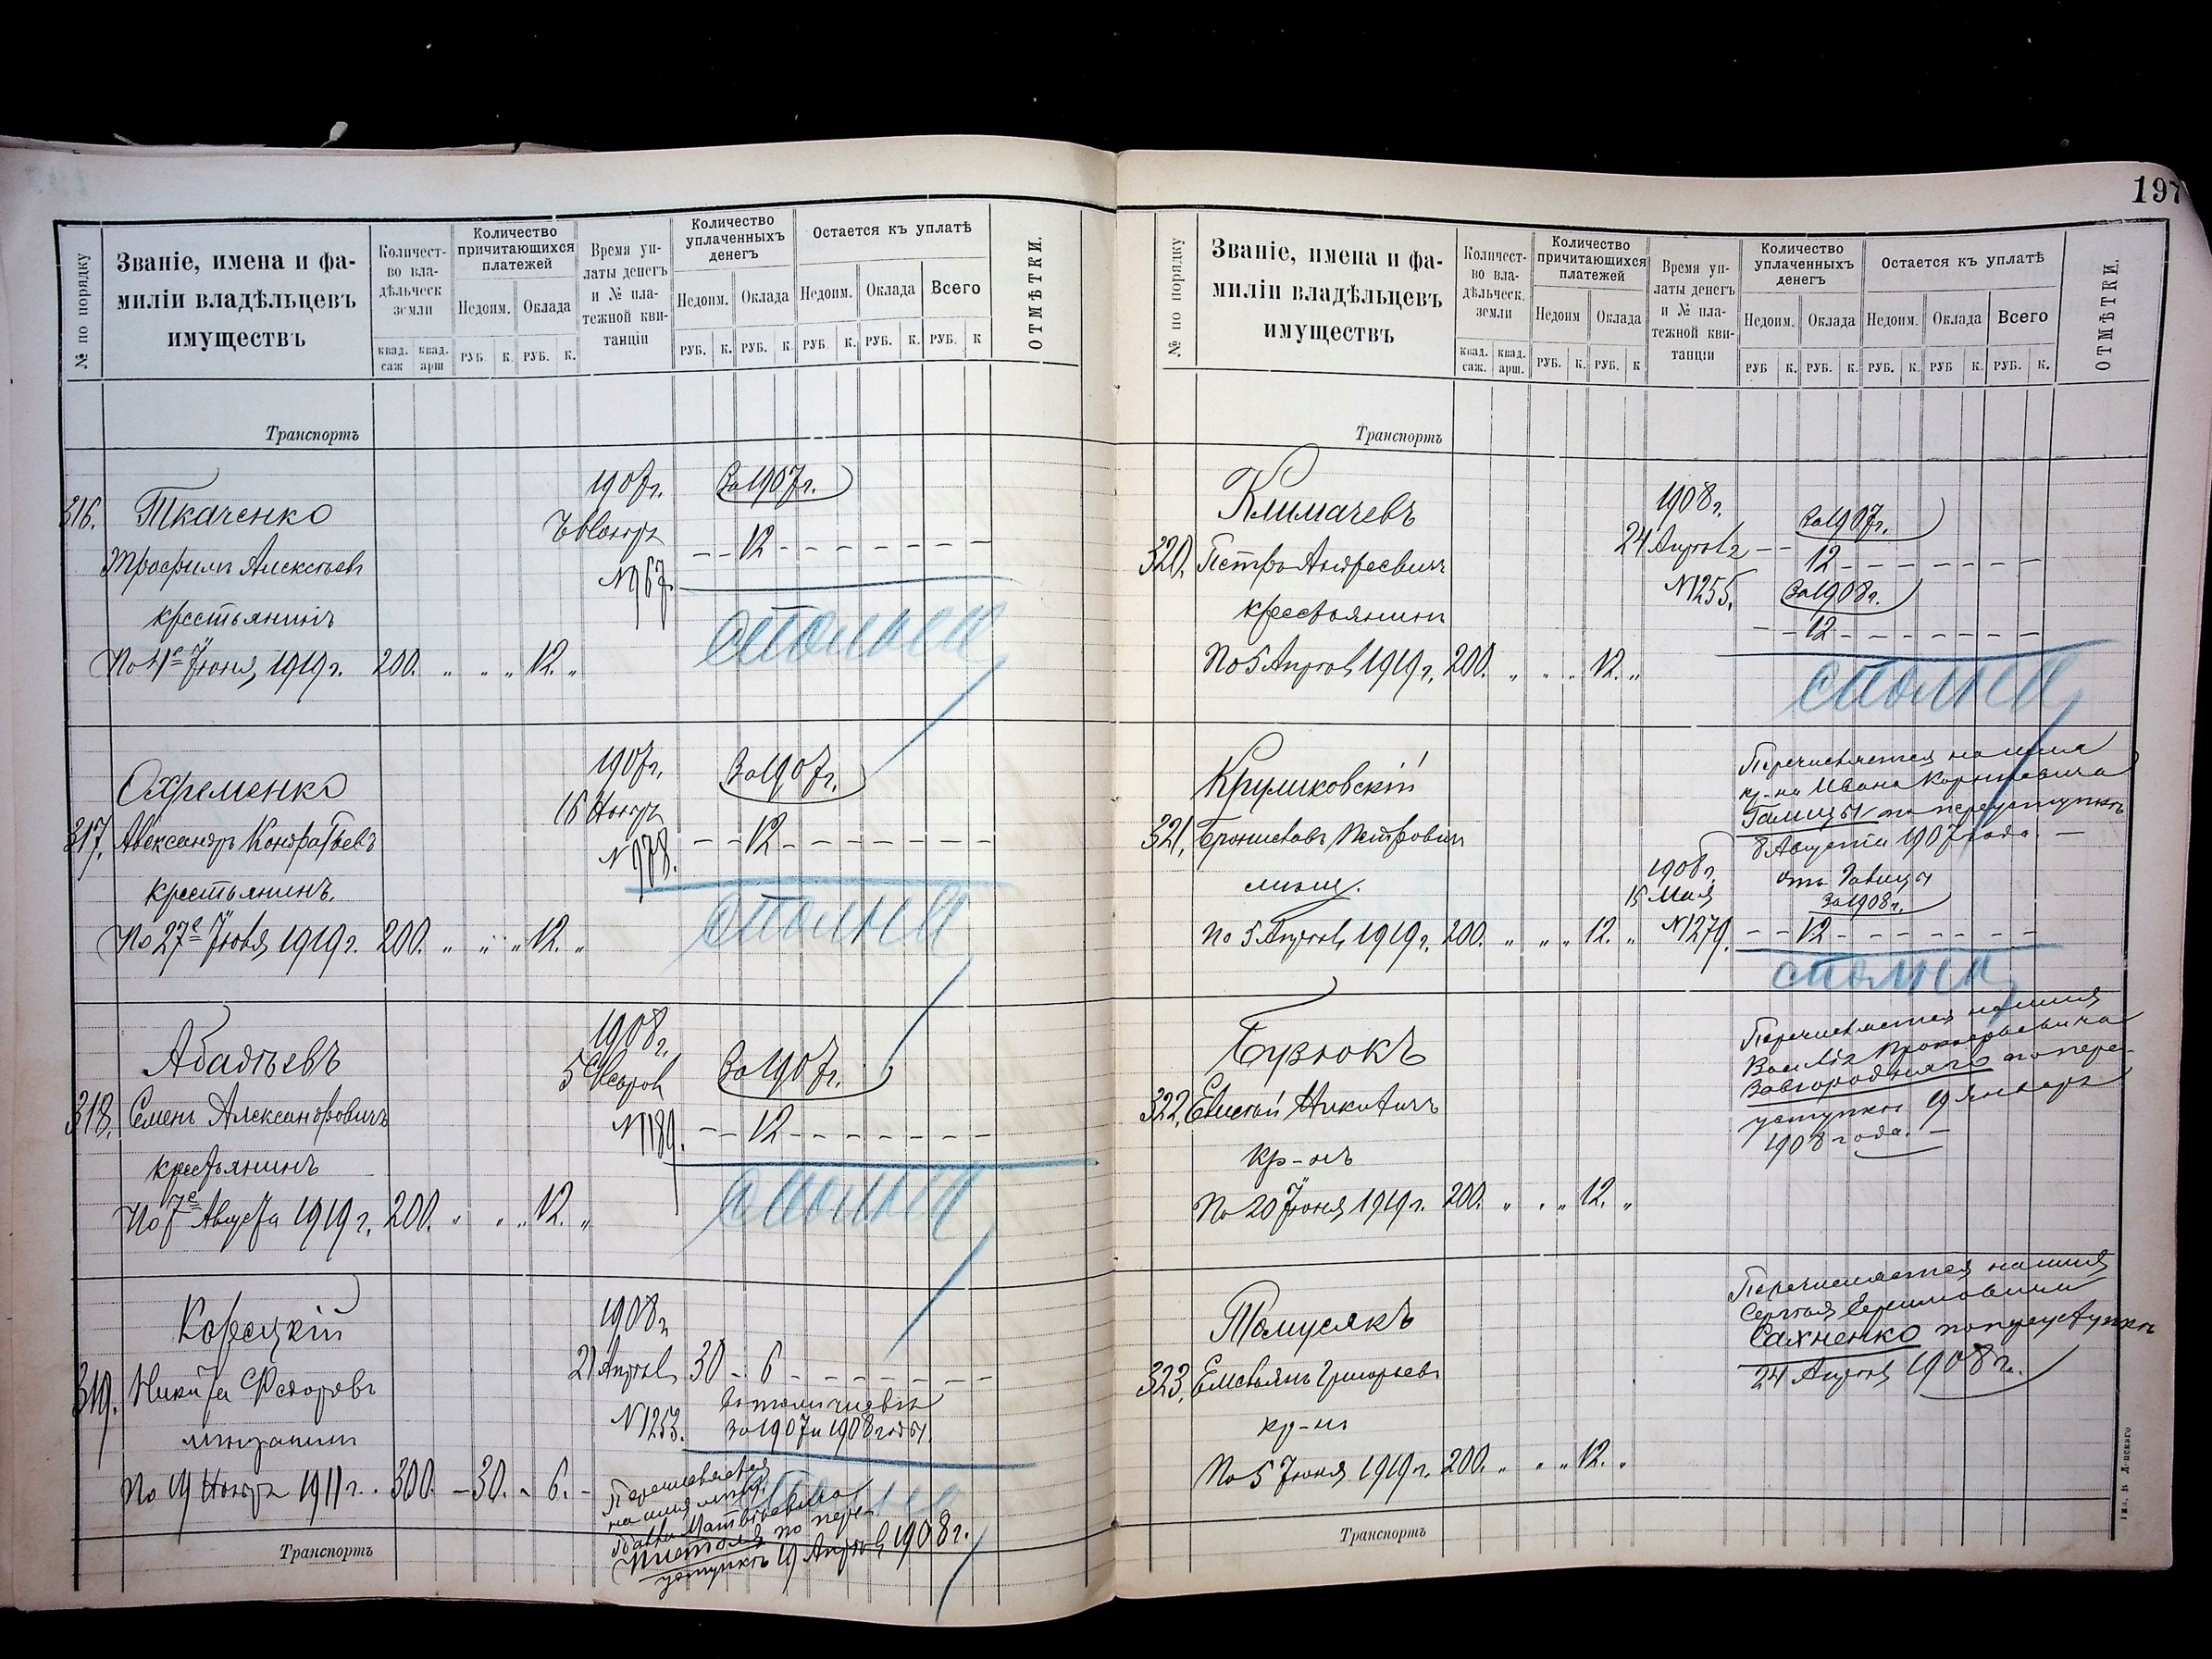 197
№ по порядку
Званіе, имена и фа-
миліи владѣльцевъ
имуществъ
Количест-
во вла-
дѣльческ
земли
квад. саж
квад. арш
Количество
причитающихся
платежей
Недоим.
Оклада
РУБ. К. РУБ. К.
Время уп-
латы денегъ
и № пла-
тежной кви-
танціи
Количество
уплаченныхъ
денегъ
Недоим. Оклада
РУБ. К. РУБ. К.
Остается къ уплатѣ
Недоим. Оклада Всего
РУБ. К. РУБ. К. РУБ. К
ОТМѢТКИ.
Транспортъ
316. Ткаченко
Трофимъ Алексѣевъ
крестьянинъ
По 4е Іюня 1919 г. 200. „ „ „ 12. „
1907 г.
№ 967.
За 1907 г.
12
317. Охременко
Александръ Кондратьевъ
крестьянинъ.
По 27е Іюня 1919 г. 200. „ „ „ 12. „
1907 г.
16 Ноября
№ 978.
За 1907 г.
12
318. Абадьевъ
Семенъ Александровичъ
крестьянинъ
По 7е Августа 1919 г. 200. „ „ „ 12. „
1908 г.
5 Февраля
№ 1189.
За 1907 г.
12
319. Корецкій
Никита Федоровъ
мѣщанинъ
По 19 Ноября 1911 г. 300. – 30. – 6. –
1908 г.
21 Апрѣля
№ 1253.
30 – 6
За 1907 и 1908 годы.
Перечисляется
на имя
Матвѣевича
по пере-
уступкѣ 19 Апрѣля 1908 г.
Транспортъ
№ по порядку
Званіе, имена и фа-
миліи владѣльцевъ
имуществъ
Количест-
во вла-
дѣльческ.
земли
квад. саж.
квад. арш.
Количество
причитающихся
платежей
Недоим
Оклада
РУБ. К. РУБ. К
Время уп-
латы денегъ
и № пла-
тежной кви-
танціи
Количество
уплаченныхъ
денегъ
Недоим. Оклада
РУБ К. РУБ. К.
Остается къ уплатѣ
Недоим. Оклада Всего
РУБ. К. РУБ К. РУБ. К.
ОТМѢТКИ.
Транспортъ
320. Климачевъ
Петръ Андреевичъ
крестьянинъ
По 5 Апрѣля 1919 г. 200. „ „ „ 12. „
1908 г.
24 Апрѣля
№ 1255.
За 1907 г.
12
За 1908 г.
12
321. Круликовскій
Брониславъ Петровичъ
мѣщ.
По 5 Апрѣля 1919 г. 200. „ „ „ 12. „
1908 г.
15 Мая
№ 1279.
Перечисляется на имя
кр-на Ивана Корнѣевича
Галицы по переуступкѣ
8 Августа 1907 года. —
отъ Галицы
За 1908 г.
12
322. Бузюкъ
Елисей Никитичъ
кр-нъ
По 20 Іюня 1919 г. 200. „ „ „ 12. „
Перечисляется на имя
Василія Прокофьевича
Завгородняго по пере-
уступкѣ 19 Января
1908 года. —
323. Томусякъ
Емельянъ Григорьевъ
кр-нъ
По 5 Іюня 1919 г. 200. „ „ „ 12. „
Перечисляется на имя
Сергѣя Ефимовича
Сахненко по переуступкѣ
24 Апрѣля 1908 г.
Транспортъ